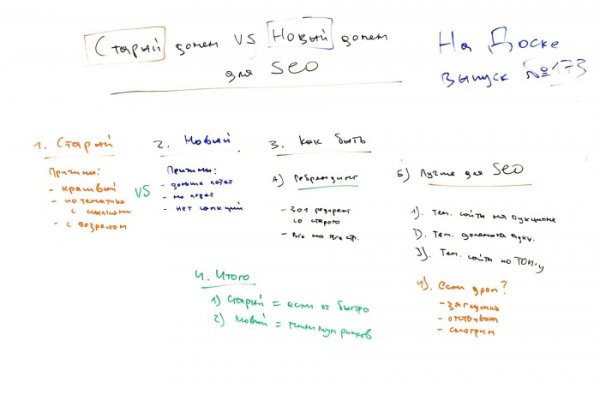 Старый домен VS Новый домен
для SEO
На Доске
выпуск №173
1. Старый
Причины:
- красивый
- по тематике
с ссылками
- с возрастом
VS
2. Новый
Причины:
- дольше
- нет санкций
3. Как быть
А) Ребрендинг
- 301 редирект
со старого
- Все на все стр.
Б) Лучше для SEO
1). Тем. сайты на аукционе
2). Тем. домены аукц.
3). Тем. сайты по ТОП-у
4). Если дроп?
- заглушка
- отстоять
- смотрим
4. Итого
1) Старый = если оч быстро
2) Новый = минимум рисков